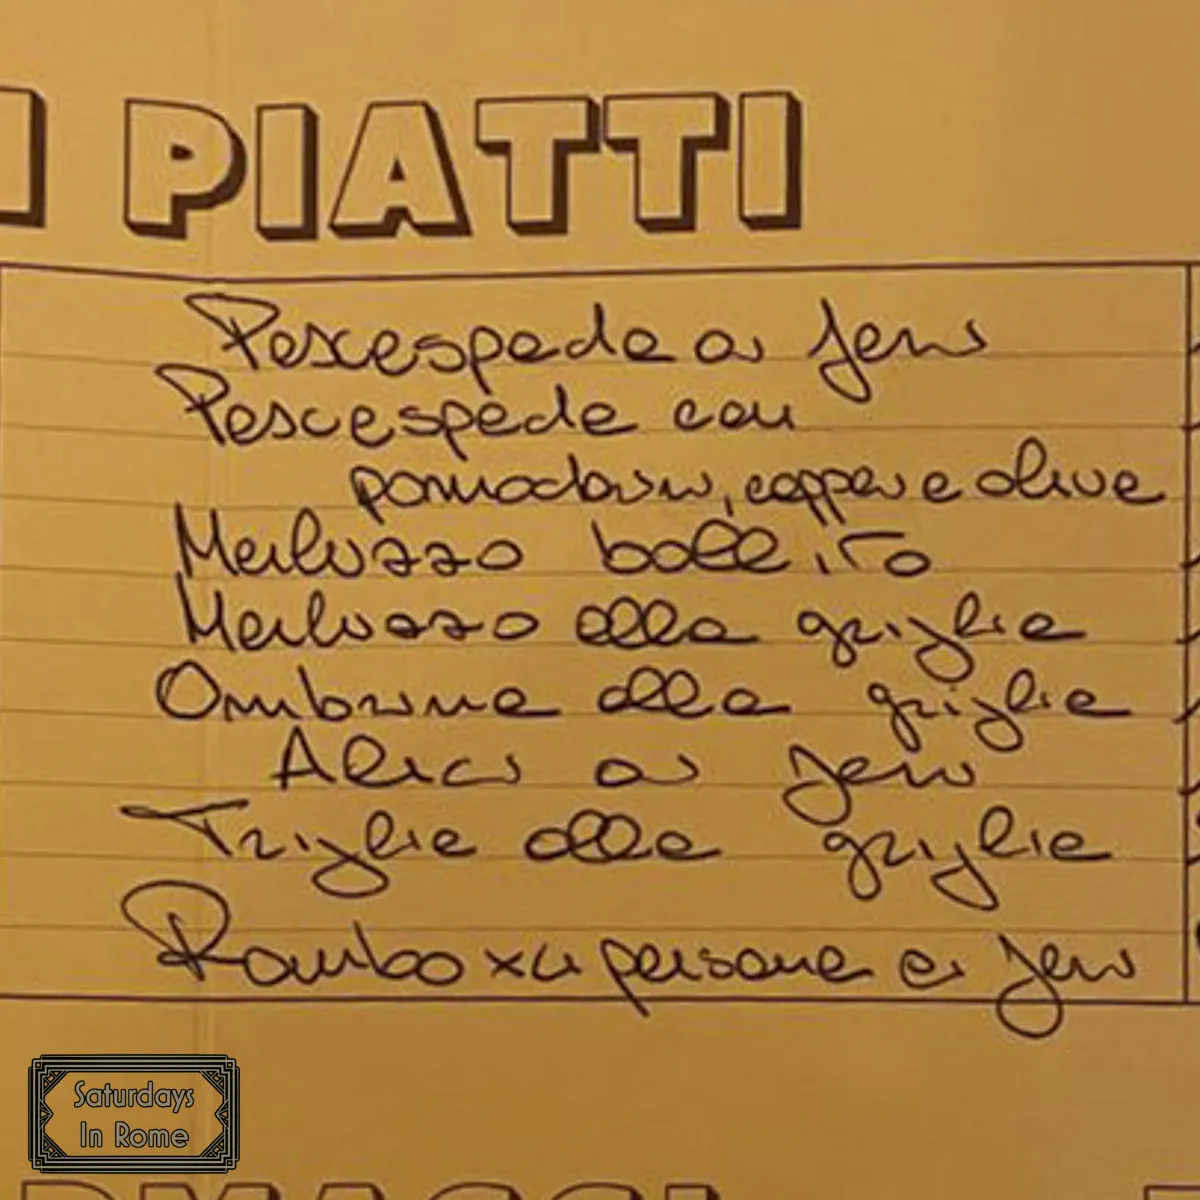 I PIATTI
Pescespada ai ferri
Pescespada con
pomodorini, capperi e olive
Merluzzo bollito
Merluzzo alla griglia
Ombrina alla griglia
Alici ai ferri
Triglie alla griglia
Rombo x 4 persone ai ferri
Saturdays
In Rome